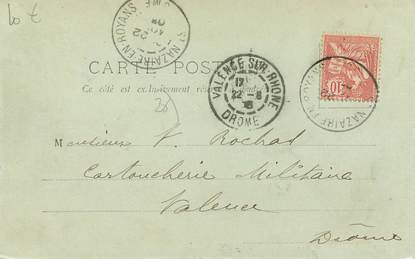 ST NAZAIRE-EN-ROYANS
22
CARTE POSTALE
Ce côté est exclusivement réservé
VALENCE-SUR-RHONE
22 -8
DROME
10
ST NAZAIRE-EN-ROYANS
Monsieur V. Rochas
Cartoucherie Militaire
Valence
Drôme